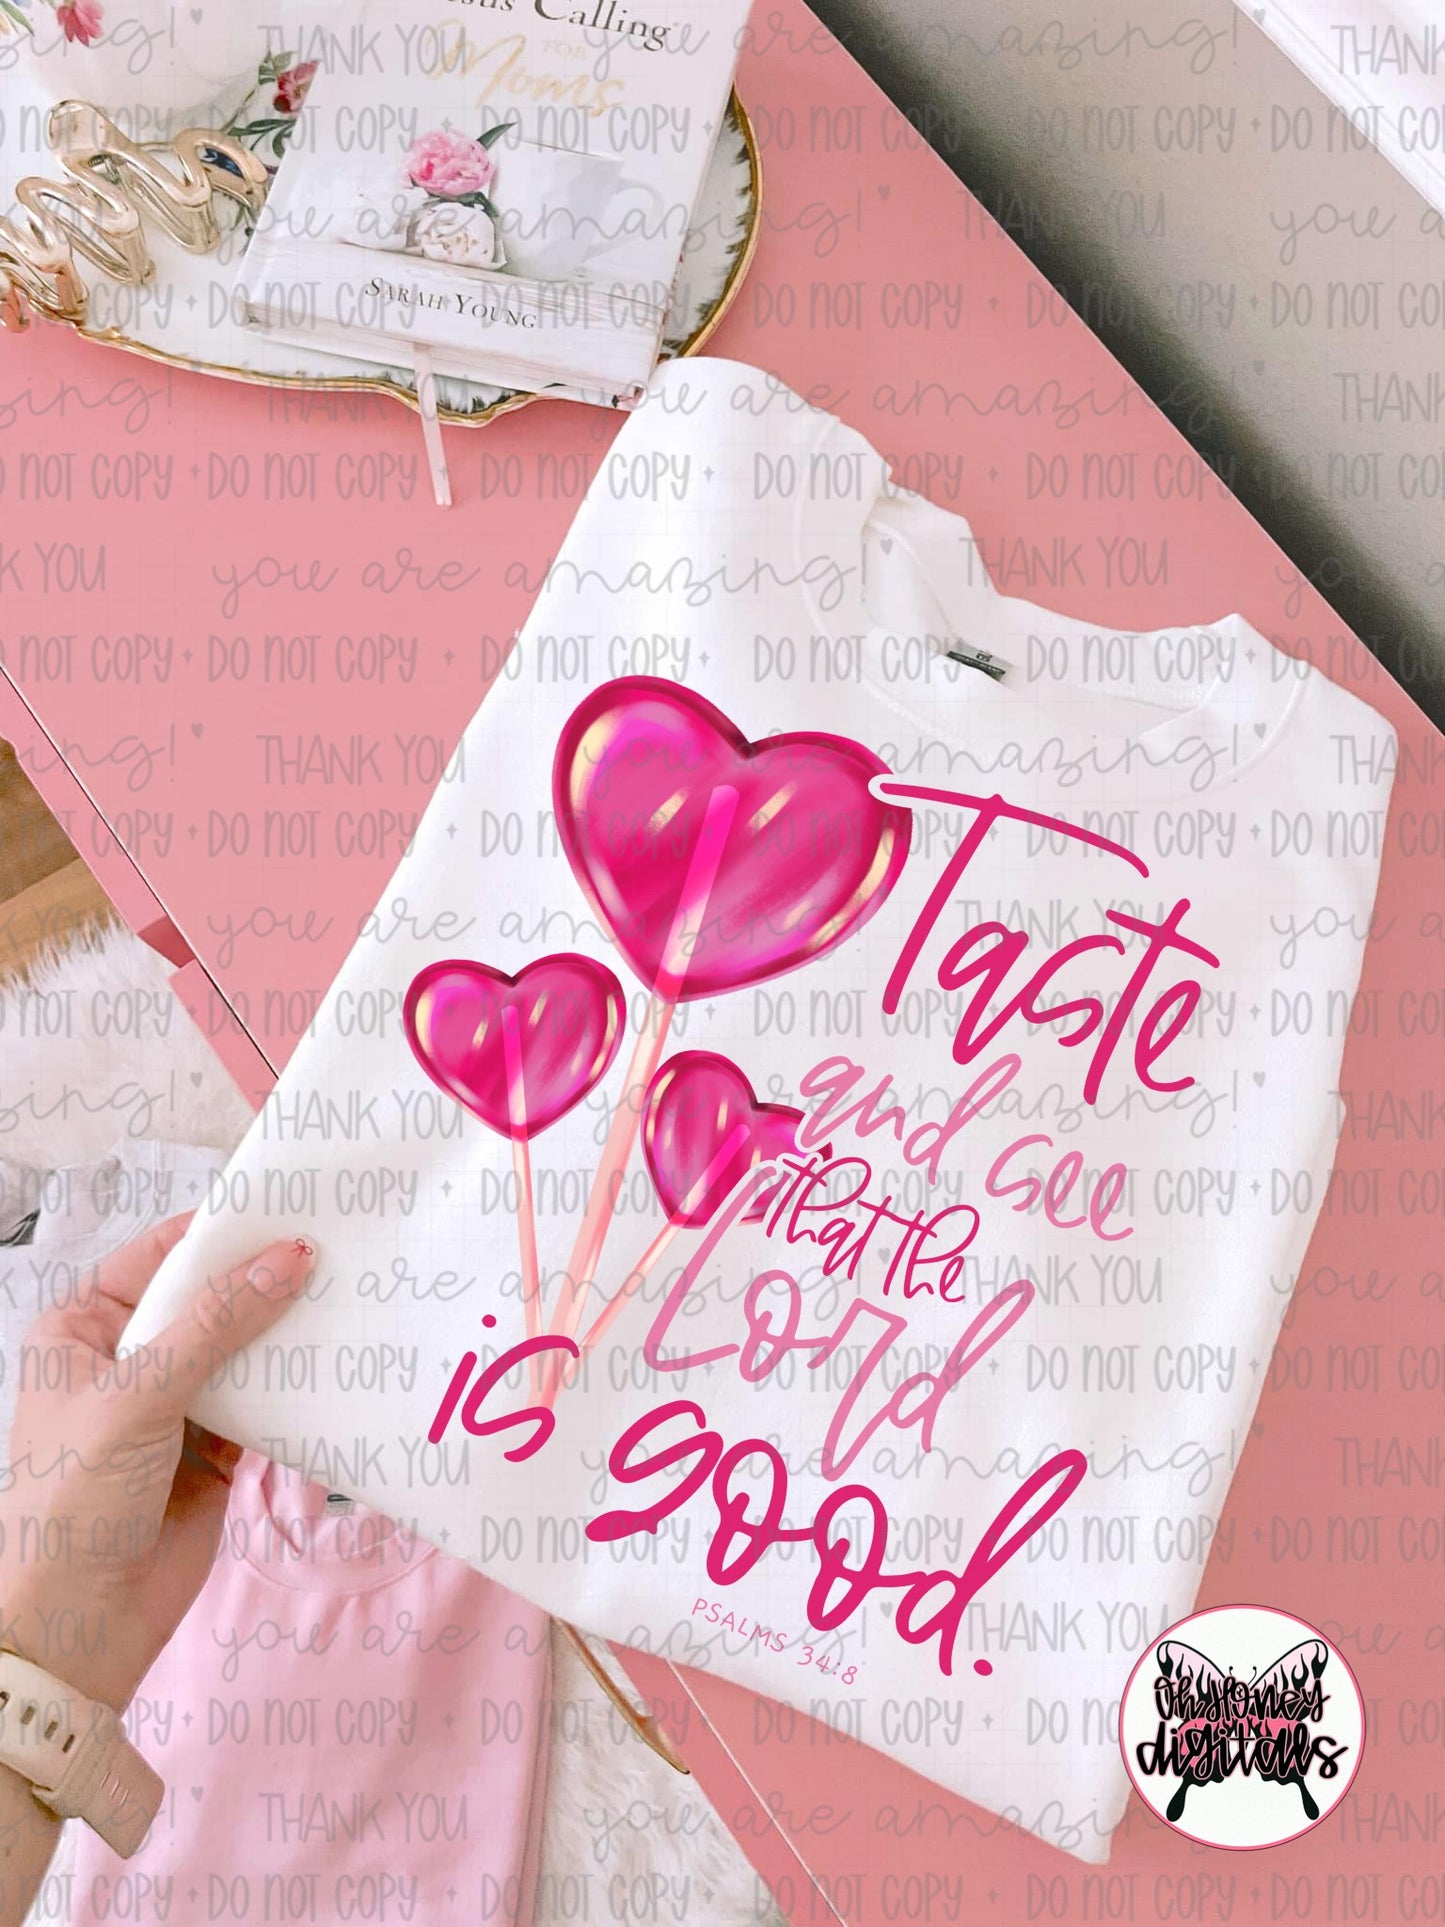 Jesus Calling
FOR
Moms
SARAH YOUNG
Taste
and see
that the
Lord
is good.
PSALMS 34:8
Oh Honey
digitals
THANK YOU you are amazing!
DO NOT COPY